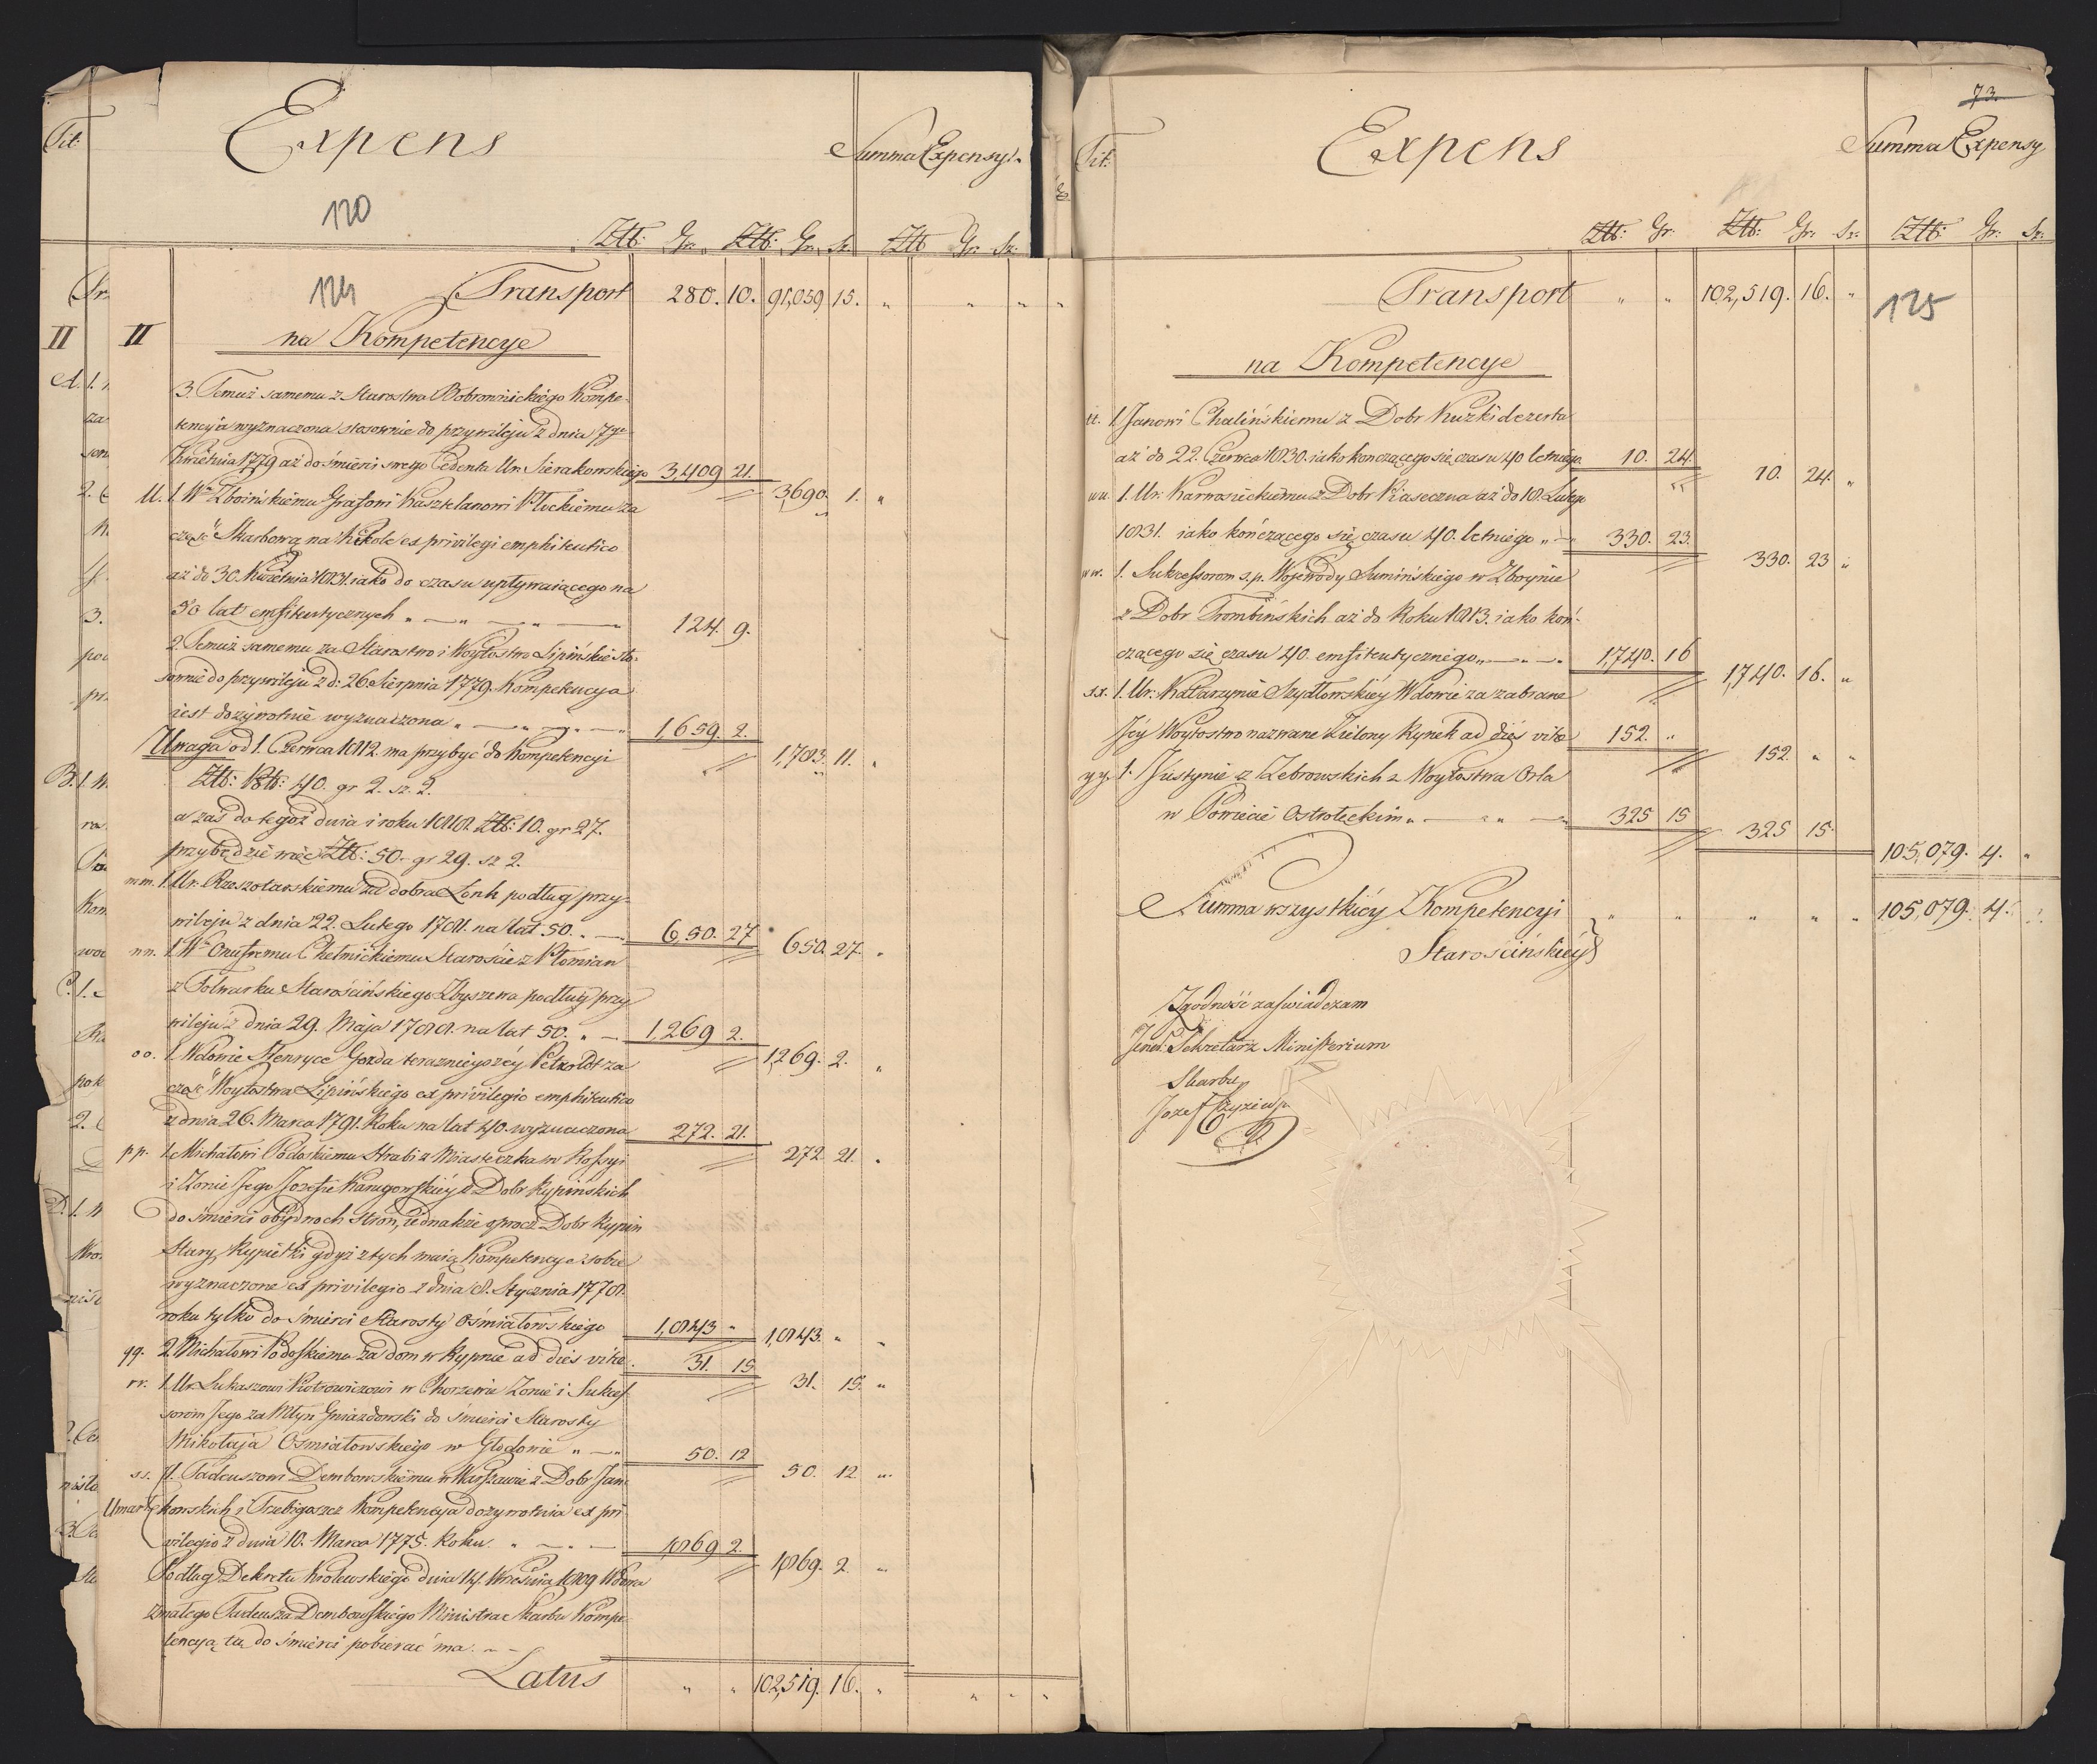 Tit:
Expens
Summa Expensy.
120
Ztt: Gr. Ztt: Gr. Sz. Ztt Gr. Sz.
124
Transport 280. 10. 91,059 15. " " " "
II
II na Kompetencye
3. Temuż samemu z Starostwa Bobrownickiego Kompe-
tencyia wyznaczona stosownie do przywileju z dnia 7go
Kwietnia 1779 aż do śmierci swego Cedenta Ur. Sierakowskiego 3,409 21.
3,690. 1. "
ll. 1. Wmu Zboińskiemu Grafowi Kasztelanowi Płockiemu za
część Skarbową na Kikole ex privilegi emphiteutico
aż do 30. Kwietnia 1831. iako do czasu upływaiącego na
50 lat emfiteutycznych " — " — " — 124. 9.
2. Temuż samemu za Starostwo i Woytostwo Lipińskie sto-
sownie do przywileju z d: 26. Sierpnia 1779. Kompetencya
iest dożywotnie wyznaczona " — " — " — 1,659. 2.
1,783. 11. "
Uwaga od 1. Czerwca 1812. ma przybyć do Kompetencyi
Ztt: Ptt: 40. gr 2. sz. 2.
a zaś do tegoż dnia i roku 1818. Ztt: 10. gr 27.
przybędzie więc Ztt: 50. gr 29. sz 2.
mm. 1. Ur. Rzeszotarskiemu za dobra Lenk podług przy-
wileju z dnia 22. Lutego 1781. na lat 50. " — 650. 27 650. 27. "
nn. 1. Wmu Onufremu Chełmickiemu Staroście z Płomian
z Folwarku Starościńskiego Zbyszewa podług przy
wileju z dnia 29. Maja 1788. na lat 50. " — 1,269 2.
1,269. 2. "
oo. 1. Wdowie Henryce Gozda teraznieyszéy Petzoldt za
część Woytostwa Lipińskiego ex privilegio emphiteutico
z dnia 26. Marca 1791. Roku na lat 40. wyznaczona 272. 21.
272 21. "
pp. 1. Michałowi Podoskiemu Hrabi z Miasteczka w Rossyi
i Zonie Jego Jozefie Karngowskiéy z Dobr Rypińskich
do śmierci obydwoch stron, iednakże oprocz Dobr Rypin
Stary, Rypiałki gdyż z tych maią Kompetencye sobie
wyznaczone ex privilegio z dnia 8. Stycznia 1778.
roku tylko do śmierci Starosty Ośmiałowskiego 1,843 " 1,843. " "
qq. 2. Michałowi Podoskiemu za dom w Rypnie ad dies vitæ. 31. 15
31. 15. "
rr. 1. Ur. Łukaszowi Piotrowiczowi w Chorzewie Zonie i Sukces-
sorom Jego za Młyn Gniazdowski do śmierci Starosty
Mikołaja Osmiałowskiego w Głodowie " — " 50. 12
50. 12 "
ss. 1. Tadeuszowi Dembowskiemu w Warszawie z Dobr Jan-
Umarły kowskich i Trzebigoszcz Kompetencya dozywotnia ex pri
vilegio z dnia 10. Marca 1775. Roku. " — " — 1,869 2.
1,869. 2. "
Podług Dekretu Krolewskiego dnia 14. Września 1809 Wdowa
zmałego Tadeusza Dembowskiego Ministra Skarbu Kompe-
tencyą tę do śmierci pobierać ma. — "
Latus " " 102,519. 16. " " " "
73.
Tit:
Expens
Summa Expensy
Ztt: Gr. Ztt: Gr: Sz: Ztt: Gr: Sz:
Transport " " 102,519. 16. "
125
na Kompetencye
tt. 1. Janowi Chalińskiemu z Dobr Kuzki dezerta
aż do 22. Czerwca 1830. iako kończącego się czasu 40 letniego 10. 24.
10. 24. "
uu. 1. Ur. Karwosieckiemu z Dobr Piaseczna aż do 18. Lutego
1831. iako kończącego się czasu 40. letniego " — 330. 23.
330. 23 "
ww. 1. Sukcessorom s.p. Wojewody Sumińskiego w Zboynie
z Dobr Trombińskich aż do Roku 1813. iako koń-
czącego się czasu 40. emfiteutycznego " — " — 1,740. 16
1,740. 16. "
xx. 1. Ur: Katarzynie Szydłowskiéy Wdowie za zabrane
Jéy Woytostwo nazwane Zielony Rynek ad dies vitæ 152. "
152. " "
yy. 1. Justynie z Zebrowskich z Woytostwa Orła
w Powiecie Ostrołęckim " — " " — 325 15
325 15.
105,079. 4. "
Summa wszystkiéy Kompetencyi " " " " " 105,079. 4.
Starościńskiéy
Zgodność zaswiadczam
Jener: Sekretarz Ministerium
Skarbu